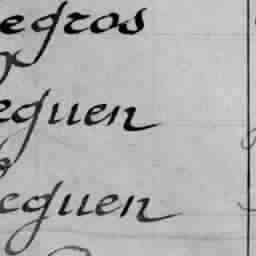 egros
eguen
eguen